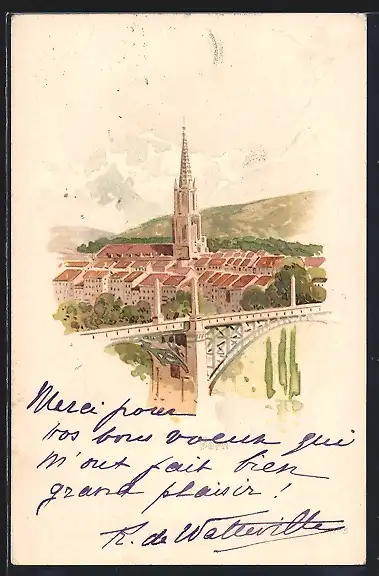 Merci pour
vos bons voeux qui
m'ont fait bien
grand plaisir !
R. de Watteville